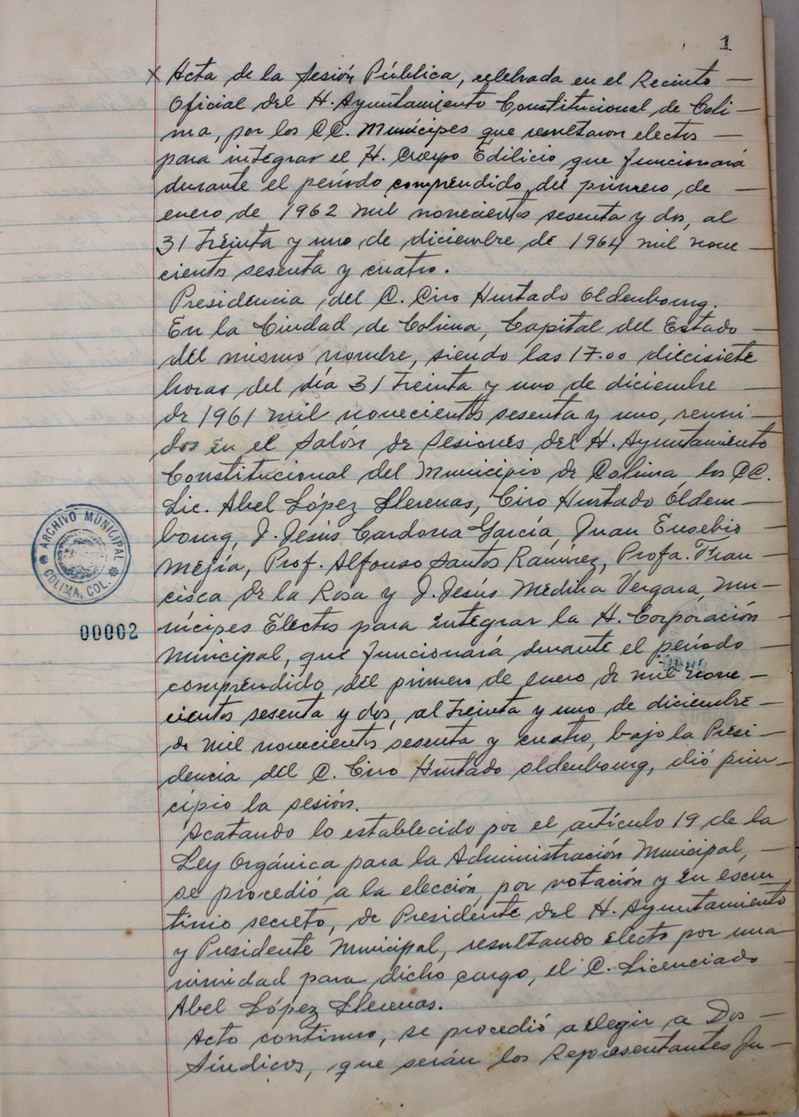 1
X Acta de la Sesión Pública, celebrada en el Recinto —
Oficial del H. Ayuntamiento Constitucional de Coli —
ma, por los CC. Munícipes que resultaron electos —
para integrar el H. Cuerpo Edilicio que funcionará
durante el período comprendido, del primero, de —
enero de 1962 mil novecientos sesenta y dos, al
31 treinta y uno de diciembre de 1964 mil nove —
cientos sesenta y cuatro.
Presidencia del C. Ciro Hurtado Oldenbourg.
En la Ciudad de Colima, Capital del Estado —
del mismo nombre, siendo las 17.00 diecisiete
horas del día 31 treinta y uno de diciembre —
de 1961 mil novecientos sesenta y uno, reuni —
dos en el Salón de Sesiones del H. Ayuntamiento
Constitucional del Municipio de Colima los CC.
Lic. Abel López Llerenas, Ciro Hurtado Oldem —
bourg, J. Jesús Cardona García, Juan Eusebio
Mejía, Prof. Alfonso Santos Ramírez, Profa. Fran —
cisca de la Rosa y J. Jesús Medina Vergara, Mu —
nícipes Electos para integrar la H. Corporación —
Municipal, que funcionará durante el período —
comprendido, del primero de enero de mil nove —
cientos sesenta y dos, al treinta y uno de diciembre —
de mil novecientos sesenta y cuatro, bajo la Presi —
dencia del C. Ciro Hurtado Oldenbourg, dió prin —
cipio la sesión.
Acatando lo establecido por el artículo 19 de la
Ley Orgánica para la Administración Municipal, —
se procedió a la elección por votación y en escru
tinio secreto, de Presidente del H. Ayuntamiento
y Presidente Municipal, resultando electo por una
nimidad para dicho cargo, el C. Licenciado —
Abel López Llerenas.
Acto continuo, se procedió a elegir a Dos —
Síndicos, que serán los Representantes Ju —
ARCHIVO MUNICIPAL
COLIMA, COL.
00002